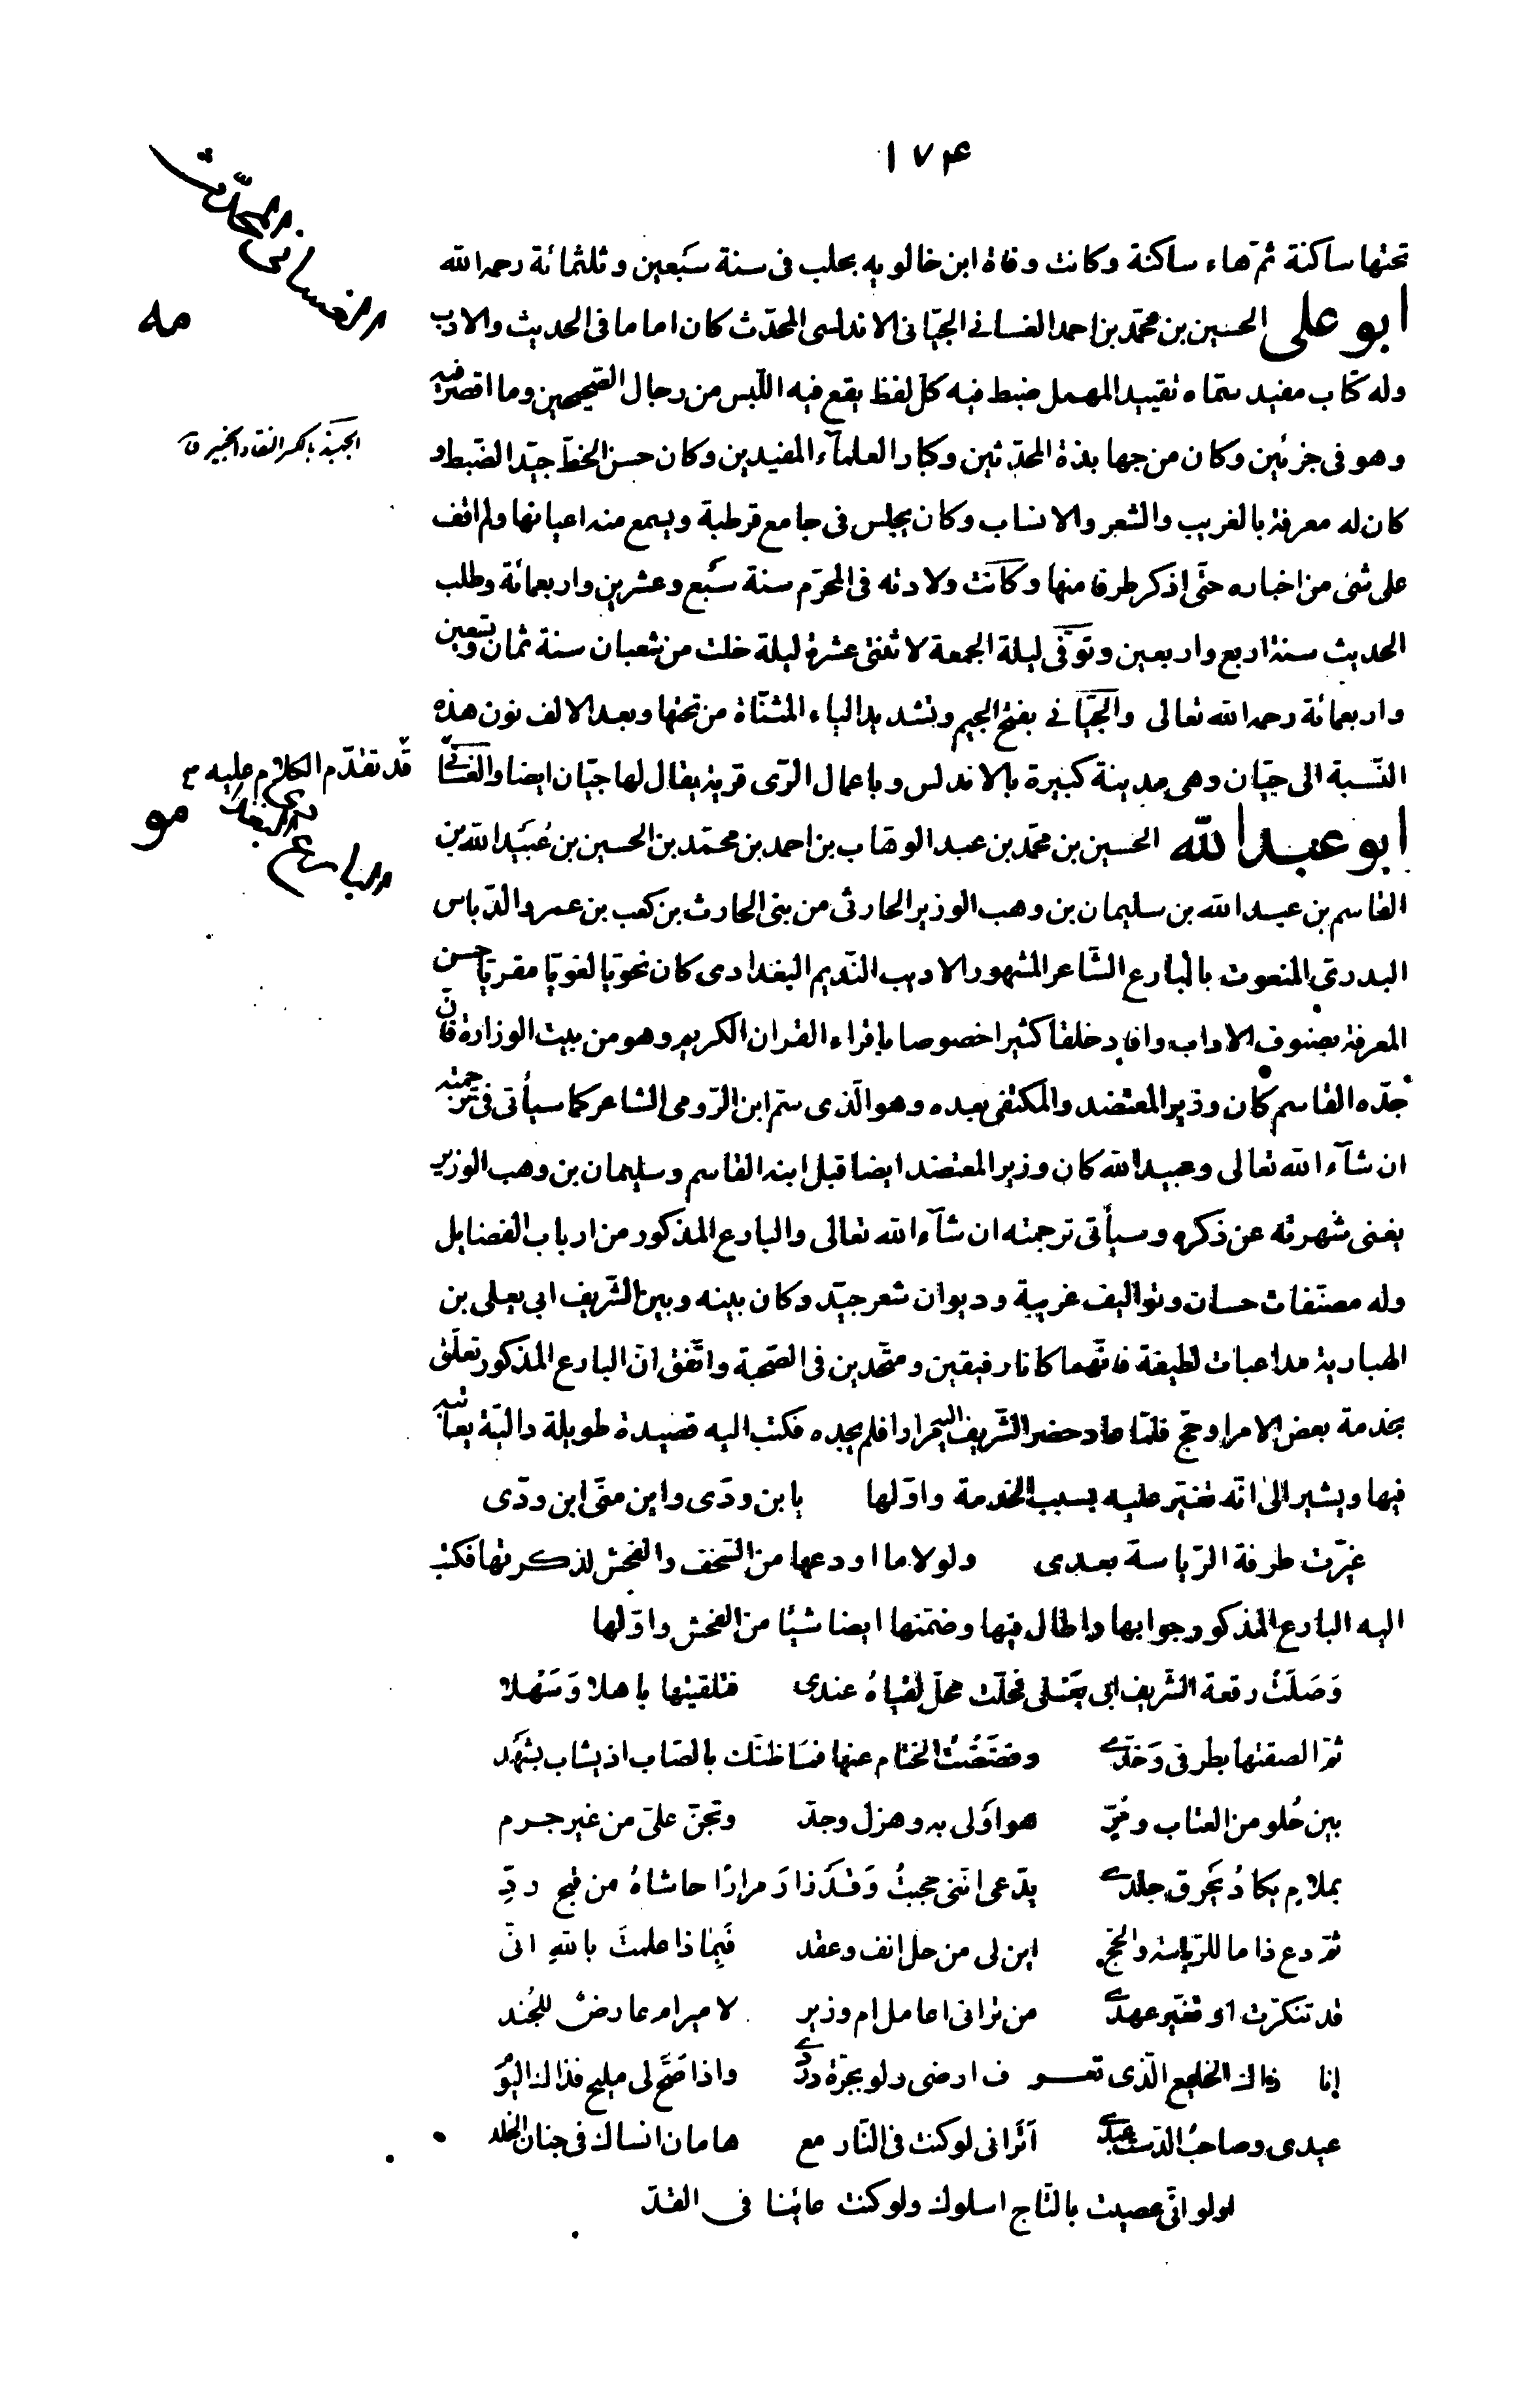 ١٧۴
تحتها ساكنة ثمّ هاء ساكنة وكانت وفاة ابن خالويه بحلب فى سنة سَبعين وثلثمائة رحمه الله
ابو على الحسين بن محمّد بن احمد الغسانى الجيّانى الاندلسى المحدّث كان اماما فى الحديث والادب
وله كتاب مفيد سمّاه تقييد المهمل ضبط فيه كلّ لفظ يقع فيه اللّبس من رجال الصّحيحين وما اقصر فيه
وهو فى جزئين وكان من جهابذة المحدّثين وكبار العلمآء المفيدين وكان حسن الخطّ جيّد الضّبط و
كان له معرفة بالغريب والشعر والانساب وكان يجلس فى جامع قرطبة ويسمع منه اعيانها ولم اقف
على شئ من اخباره حتّى اذكر طرفا منها وكانت ولادته فى المحرّم سنة سَبع وعشرين واربعمائة وطلب
الحديث سنة اربع واربعين وتوفّى ليلة الجمعة لاثنتى عشرة ليلة خلت من شعبان سنة ثمان وتسعين
واربعمائة رحمه الله تعالى والجَيّانى بفتح الجيم وتشديد الياء المثنّاة من تحتها وبعد الالف نون هذه
النّسبة الى جيّان وهى مدينة كبيرة بالاندلس وباعمال الرّى قرية يقال لها جيّان ايضا والغسّانى
قد تقدّم الكلام عليه
ابو عبد الله الحسين بن محمّد بن عبد الوهّاب بن احمد بن محمّد بن الحسين بن عُبَيد الله بن
القاسم بن عبيد الله بن سليمان بن وهب الوزير الحارثى من بنى الحارث بن كعب بن عمرو الدّباس
البدرىّ المنعوت بالبارع الشّاعر المشهور الاديب النّديم البغدادى كان نحويّا لغويّا مقريّا حسن
المعرفة بصنوف الاداب وافاد خلقا كثيرا خصوصا باقراء القران الكريم وهو من بيت الوزارة فانّ
جدّه القاسم كان وزير المعتضد والمكتفى بعده وهو الّذى سمّ ابن الرّومى الشاعر كما سيأتى فى ترجمته
ان شآء الله تعالى وعبيد الله كان وزير المعتضد ايضا قبل ابنه القاسم وسليمان بن وهب الوزير
يغنى شهرته عن ذكره وسيأتى ترجمته ان شآء الله تعالى والبارع المذكور من ارباب الفضايل
وله مصنّفات حسان وتواليف غريبة وديوان شعر جيّد وكان بينه وبين الشّريف ابى يعلى بن
الهبارية مداعبات لطيفة فانّهما كانا رفيقين ومتّحدين فى الصّحبة واتّفق انّ البارع المذكور تعلّق
بخدمة بعض الامراء وحجّ فلمّا عاد حضر الشّريف اليه مرارا فلم يجده فكتب اليه قصيدة طويلة داليّة يعاتبه
فيها ويشير الى انّه تغيّر عليه بسبب الخدمة واوّلها يا بن ودّى واين منّى ابن ودّى
غيّرت طرفة الرّياسة بعدى ولولا ما اودعها من السّخف والفحش لذكرتها فكتب
اليه البارع المذكور جوابها واطال فيها وضمّنها ايضا شيئا من الفحش واوّلها
وَصَلَتْ رقعة الشّريف ابى يَعْلى فحلّت محلّ لقياهُ عندى فتلقيتها باهلا وَسَهلا
ثمّ الصقتها بطرفى وَخدّى وفضَضتُ الختام عنها فمَا ظنّك بالصّاب اذ يشاب بشَهد
بين حُلو من العتاب ومُرّ هو اَولى به وهزل وجدّ وتجنّ علىّ من غير جرم
بملام يكادُ يَحرق جلدى يدّعى انّنى حجبتُ وَقَد زارَ مرارًا حاشاهُ من قبح ردّ
ثمّ دع ذا ما للرّياسة والحجّ ابن لى من حل انف وعقد فبماذا علمتَ باللهِ انّى
قد تنكرّت او تغيّر عهدى من ترانى اعامل ام وزير لامير ام عارض للجُند
انا ذاك الخليع الّذى تعـــرف ارضى ولو بجرّة دردى واذا صَحّ لى مليح فذاك اليوُ
عيدى وصاحبُ الدّست عبدى اَتَرانى لو كنت فى النّار مع هامان انساك فى جنان الخلد
او لو انّى عصبت بالتّاج اسلوك ولو كنت عانيا فى القدّ
الغسانى المحدّث
مه
الجهبذ بالكسر النقاد الخبير ق
البارع البغدادى
مو